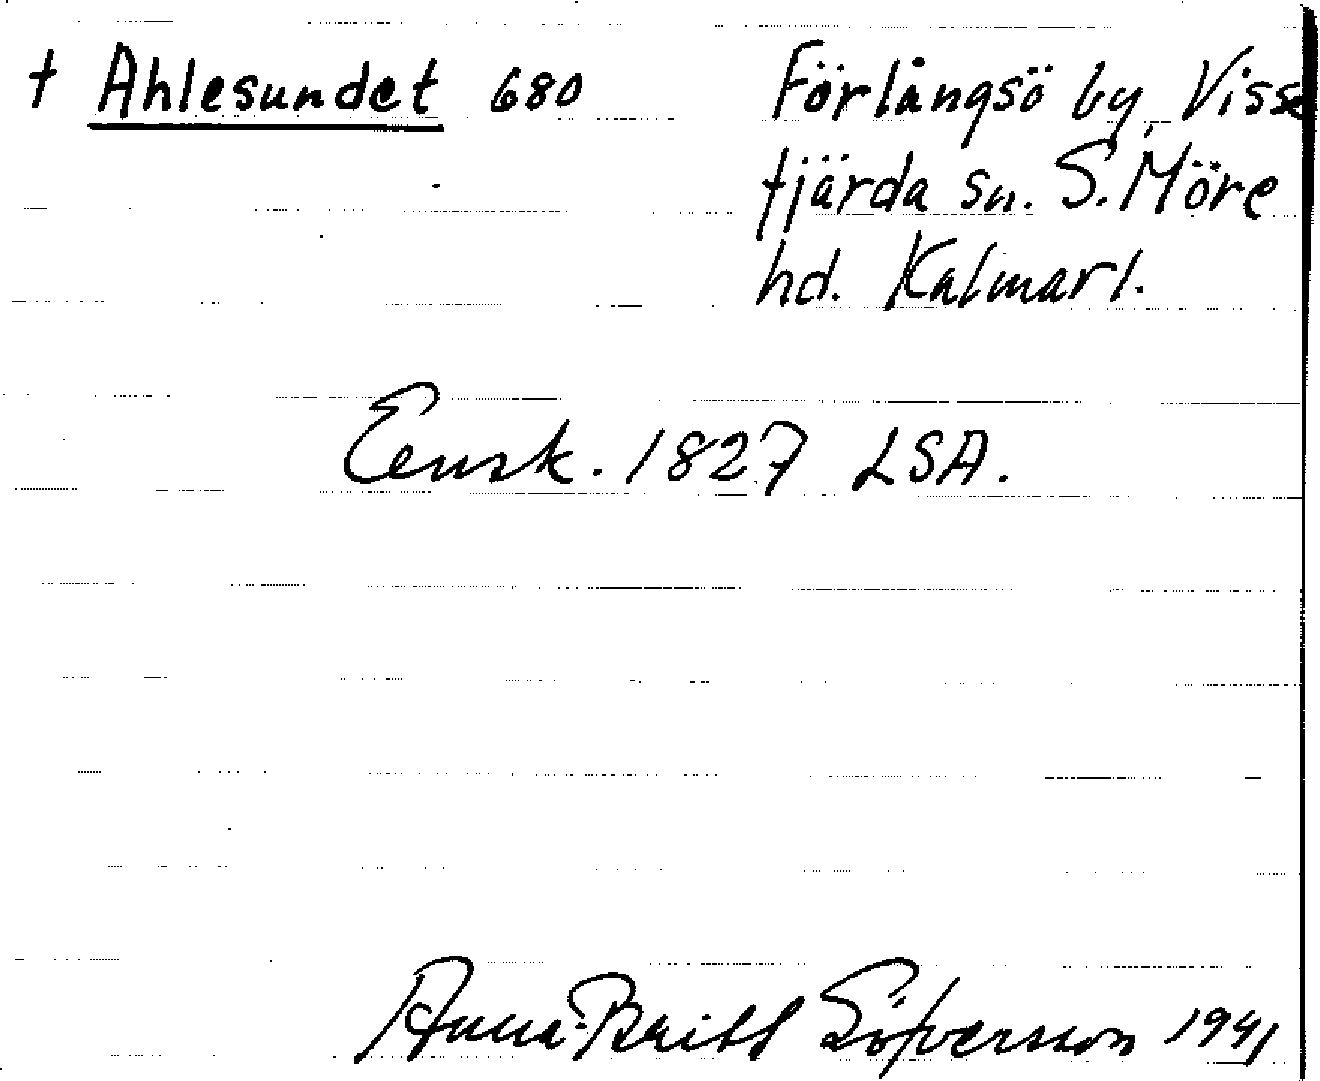 † Ahlesundet 680 Förlångsö by, Visse
fjärda sn. S. Möre
hd. Kalmar l.
Ensk. 1827 LSA.
Anna-Britt Sifversson 1941